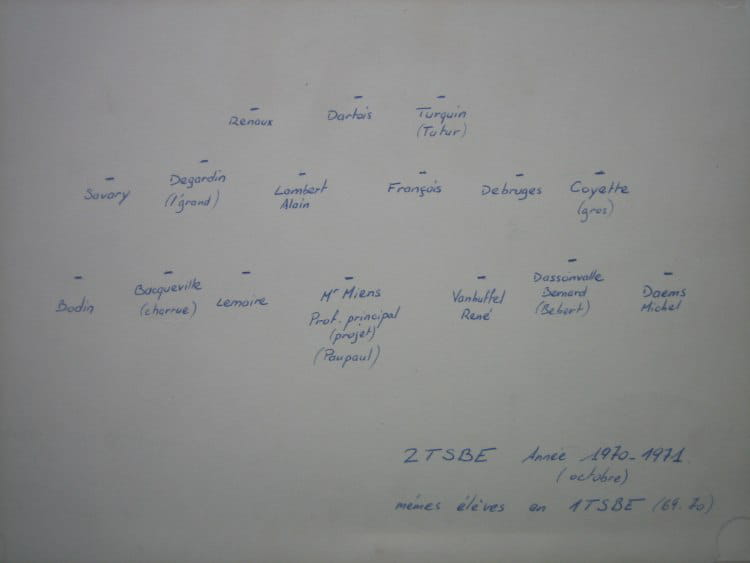 Renaux
Dartois
Turquin
(Tutur)
Savary
Degardin
(l'grand)
Lambert
Alain
François
Debruges
Coyette
(gros)
Bodin
Bacqueville
(charrue)
Lemaire
Mr Miens
Prof. principal
(projet)
(Paupaul)
Vanhuffel
René
Dassonvalle
Bernard
(Bebert)
Daems
Michel
2TSBE Année 1970-1971
(octobre)
mêmes élèves en 1TSBE (69.70)